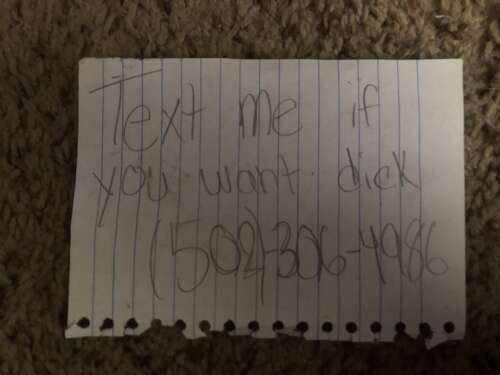 Text me if
you want dick
(502)-306-4986